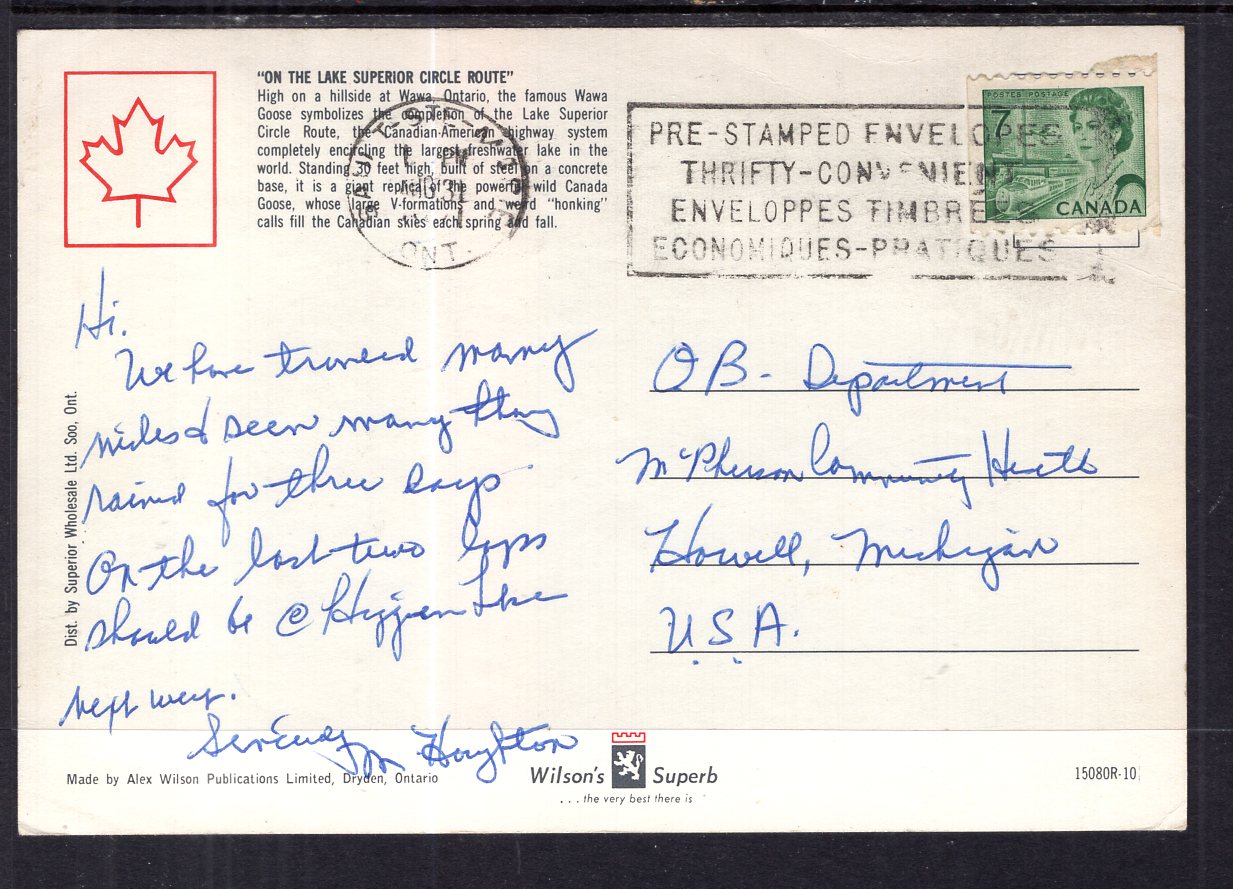 "ON THE LAKE SUPERIOR CIRCLE ROUTE"
High on a hillside at Wawa, Ontario, the famous Wawa
Goose symbolizes the completion of the Lake Superior
Circle Route, the Canadian-American highway system
completely encircling the largest freshwater lake in the
world. Standing 30 feet high, built of steel on a concrete
base, it is a giant replica of the powerful wild Canada
Goose, whose large V-formations and weird "honking"
calls fill the Canadian skies each spring and fall.
SAULT-STE-MARIE
PM
31
ONT.
PRE-STAMPED ENVELOPES
THRIFTY-CONVENIENT
ENVELOPPES TIMBREES
ECONOMIQUES-PRATIQUES
POSTES POSTAGE
7
CANADA
Hi.
We have traveled many
miles & seen many things
rained for three days
On the last two laps
should be @ Higgins Lake
next week.
M Houghton
OB- Department
McPherson Community Health
Howell, Michigan
U.S.A.
Dist. by Superior Wholesale Ltd. Soo, Ont.
Made by Alex Wilson Publications Limited, Dryden, Ontario
Wilson's Superb
. . . the very best there is
15080R-10